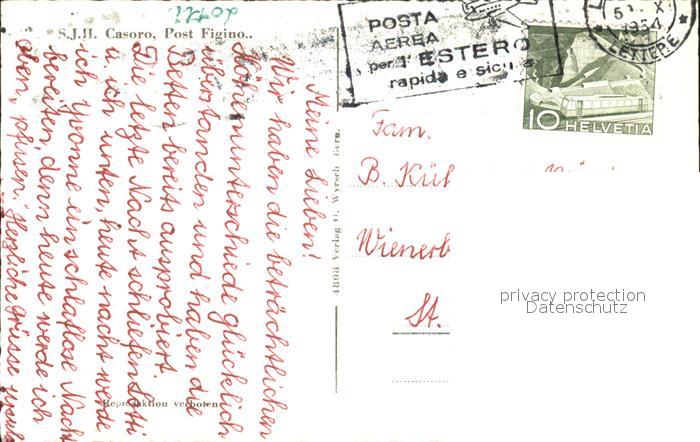 20721
S.J.H. Casoro, Post Figino..
POSTA
AEREA
per l'ESTERO
rapida e sicura
1954
LETTERE
10 HELVETIA
Meine Lieben!
Wir haben die beträchtlichen
Höhenunterschiede glücklich
überstanden und haben die
Betten bereits ausprobiert.
Die letzte Nacht schliefen Lotti
u. ich unten, heute nacht werde
ich Yvonne eine schlaflose Nacht
bereiten, denn heute werde ich
oben, pfusen. Herzliche Grüsse
4808 Verlag G. Wyrsch Bern.
Reproduktion verboten
Fam.
B. Küh
Wienerb
St.
privacy protection
Datenschutz